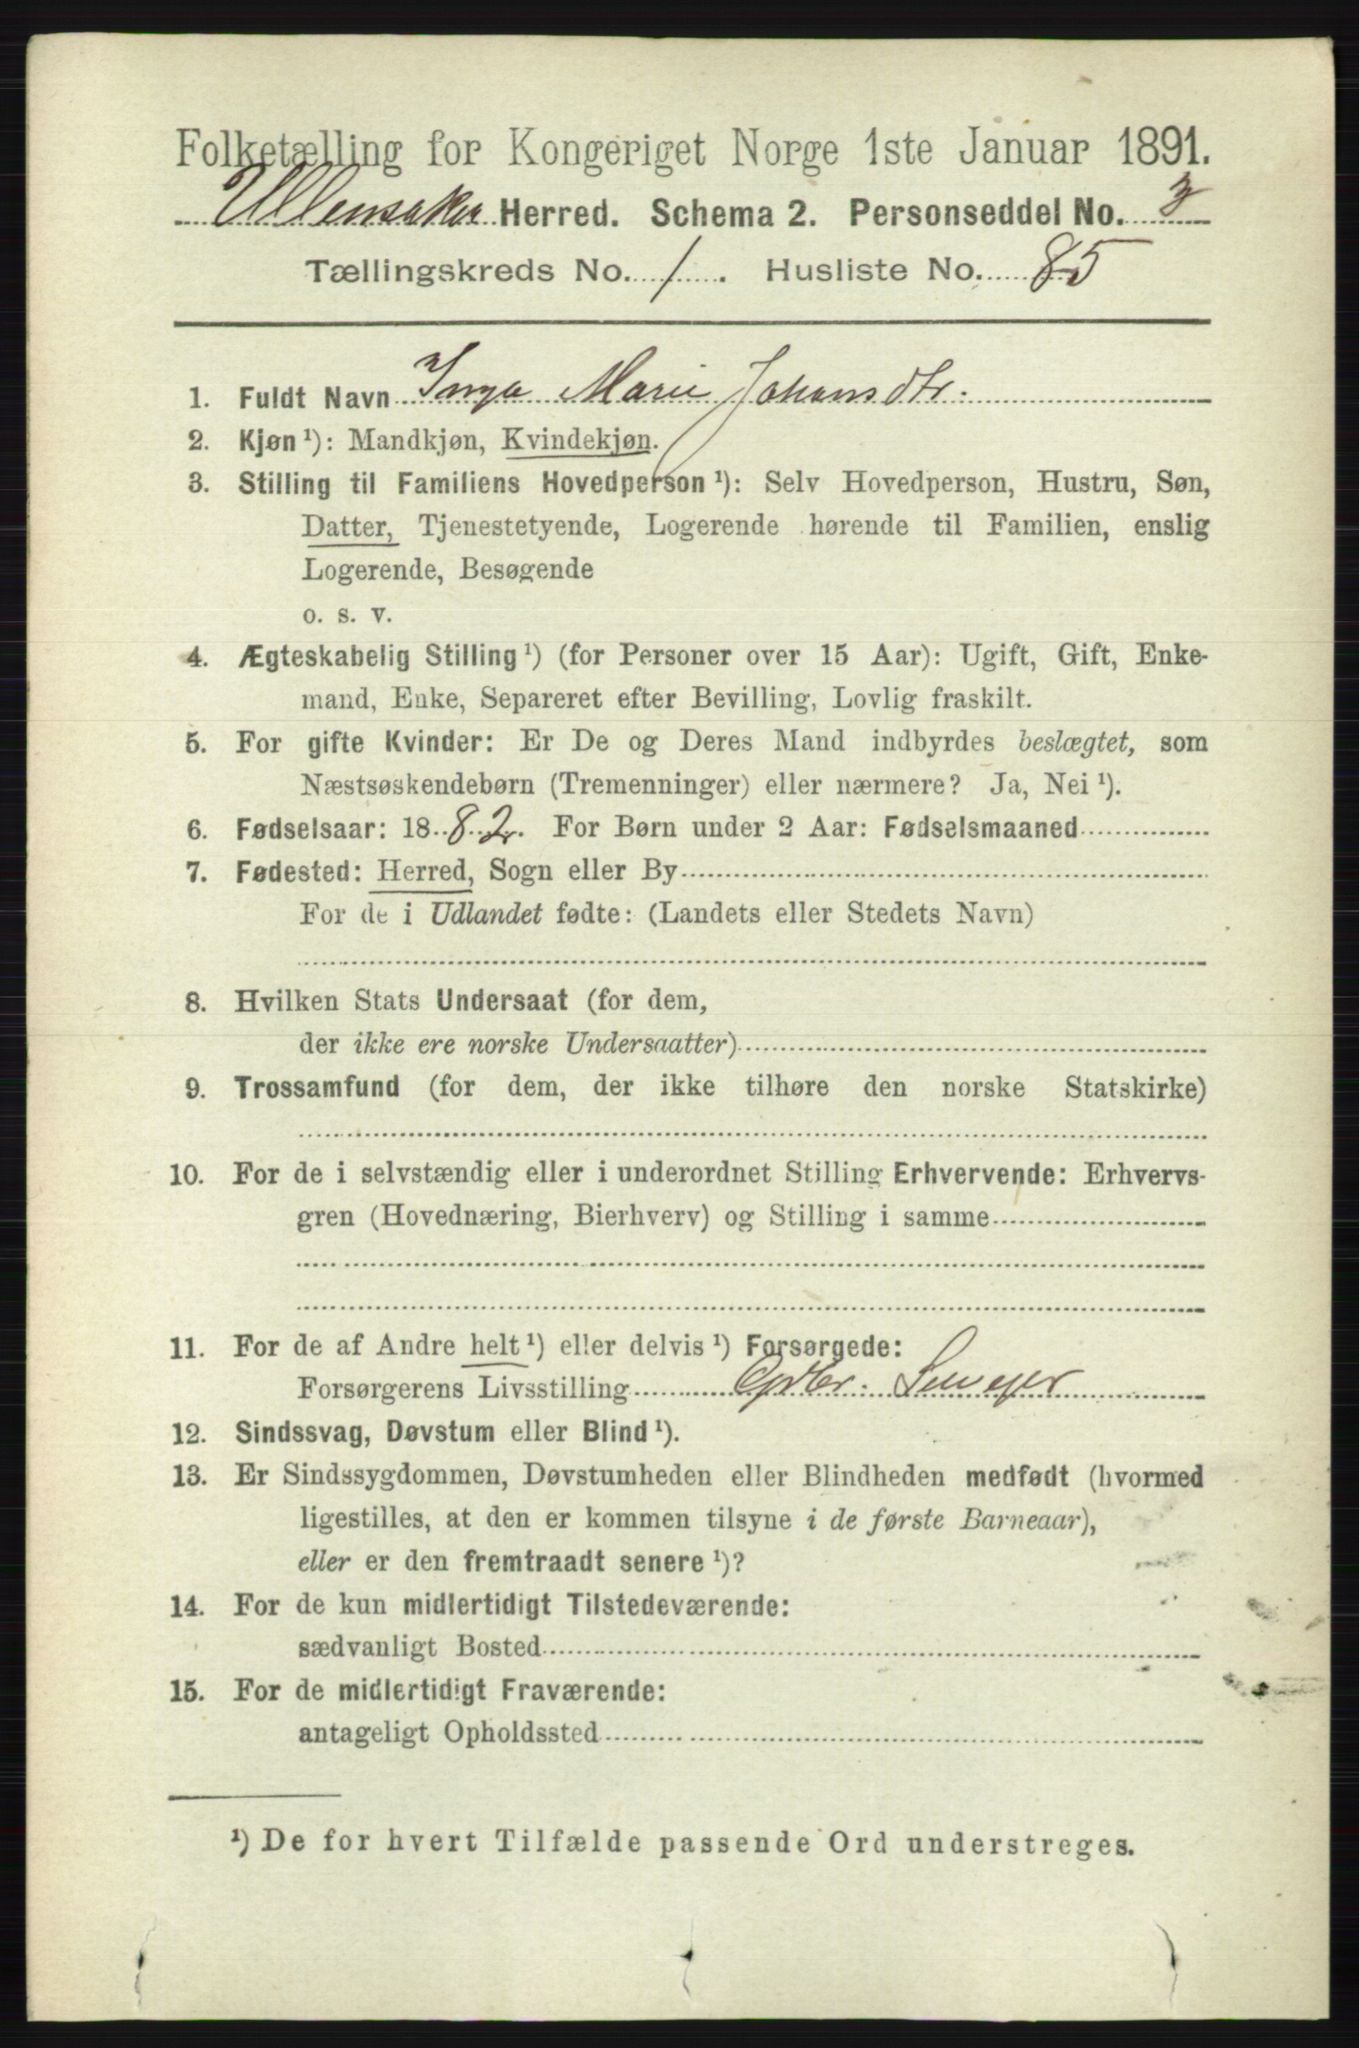 Folketælling for Kongeriget Norge 1ste Januar 1891.
Ullensaker Herred. Schema 2. Personseddel No. 3
Tællingskreds No. 1. Husliste No. 85
1. Fuldt Navn Inga Marie Johansdtr.
2. Kjøn ¹): Mandkjøn, Kvindekjøn.
3. Stilling til Familiens Hovedperson ¹): Selv Hovedperson, Hustru, Søn,
Datter, Tjenestetyende, Logerende hørende til Familien, enslig
Logerende, Besøgende
o. s. v.
4. Ægteskabelig Stilling ¹) (for Personer over 15 Aar): Ugift, Gift, Enke-
mand, Enke, Separeret efter Bevilling, Lovlig fraskilt.
5. For gifte Kvinder: Er De og Deres Mand indbyrdes beslægtet, som
Næstsøskendebørn (Tremenninger) eller nærmere? Ja, Nei ¹).
6. Fødselsaar: 1882. For Børn under 2 Aar: Fødselsmaaned
7. Fødested: Herred, Sogn eller By
For de i Udlandet fødte: (Landets eller Stedets Navn)
8. Hvilken Stats Undersaat (for dem,
der ikke ere norske Undersaatter)
9. Trossamfund (for dem, der ikke tilhøre den norske Statskirke)
10. For de i selvstændig eller i underordnet Stilling Erhvervende: Erhvervs-
gren (Hovednæring, Bierhverv) og Stilling i samme
11. For de af Andre helt ¹) eller delvis ¹) Forsørgede:
Forsørgerens Livsstilling
12. Sindssvag, Døvstum eller Blind ¹).
13. Er Sindssygdommen, Døvstumheden eller Blindheden medfødt (hvormed
ligestilles, at den er kommen tilsyne i de første Barneaar),
eller er den fremtraadt senere ¹)?
14. For de kun midlertidigt Tilstedeværende:
sædvanligt Bosted
15. For de midlertidigt Fraværende:
antageligt Opholdssted
¹) De for hvert Tilfælde passende Ord understreges.